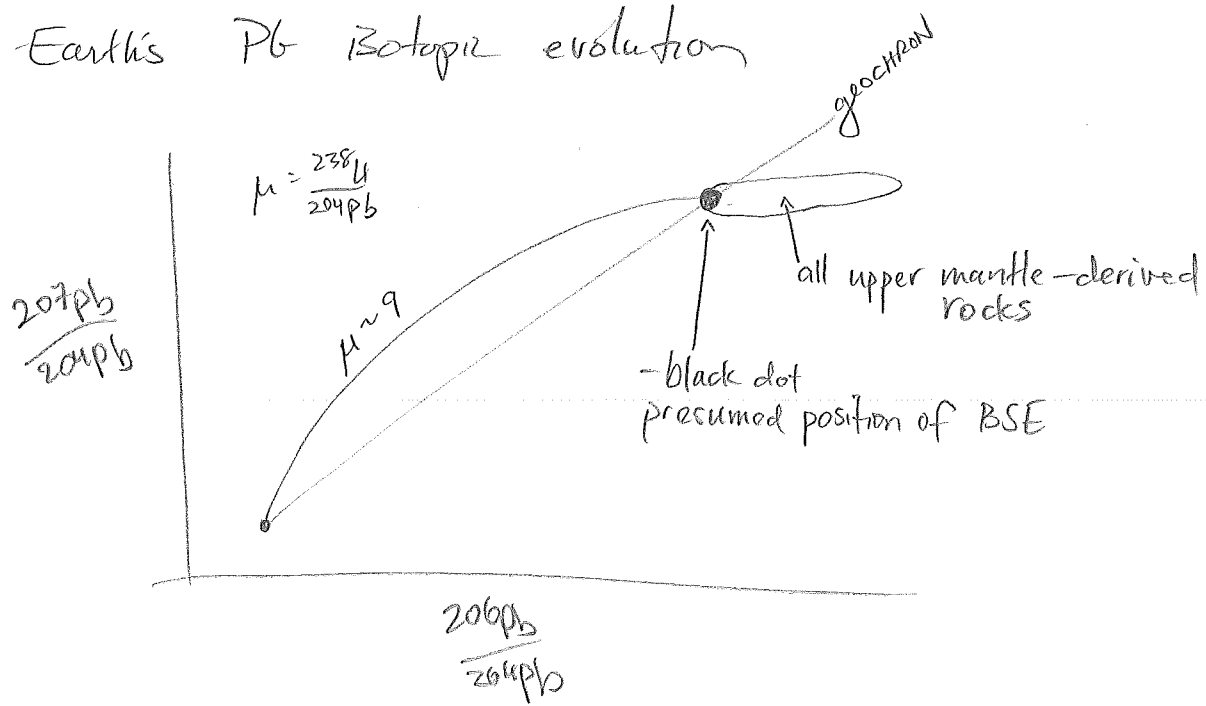 Earth's Pb isotopic evolution
geoCHRON
μ = 238U
204Pb
207Pb
204Pb
μ ~ 9
all upper mantle-derived
rocks
-black dot
presumed position of BSE
206Pb
204Pb